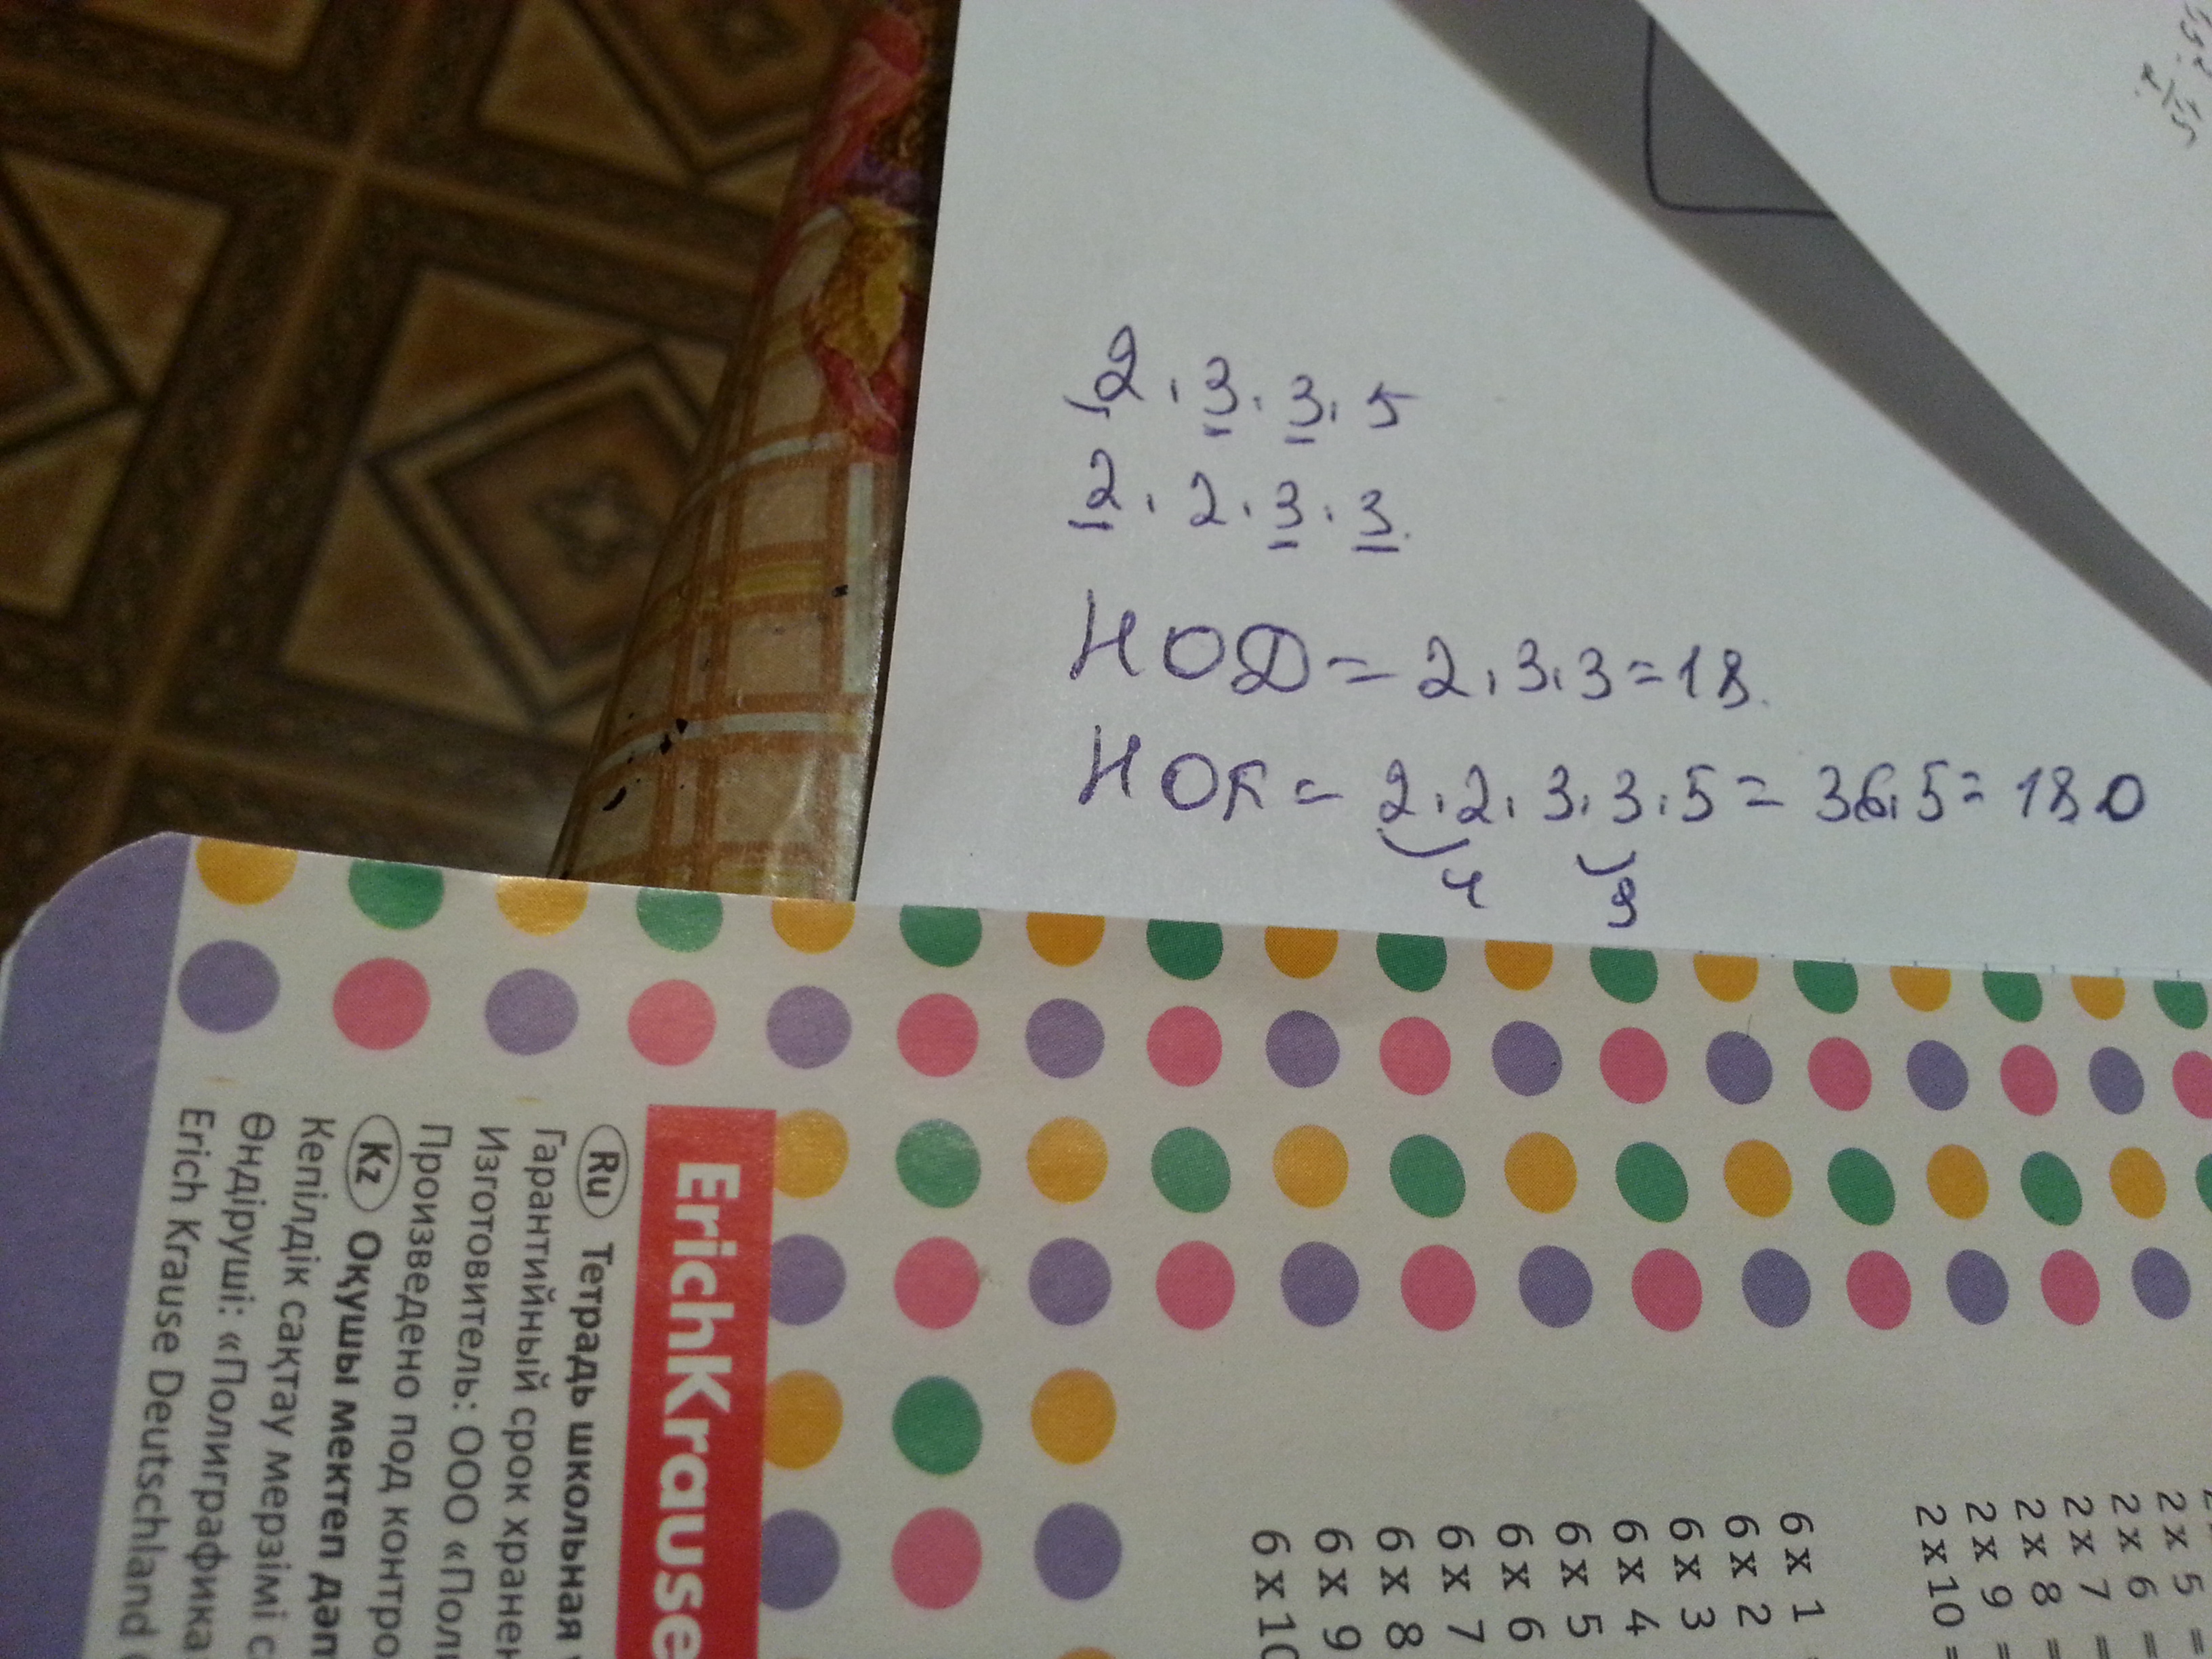 2 · 3 · 3 · 5
2 · 2 · 3 · 3.
НОД = 2 · 3 · 3 = 18.
НОК = 2 · 2 · 3 · 3 · 5 = 36 · 5 = 180
4 9
ErichKrause
Ru Тетрадь школьная
Гарантийный срок хранен
Изготовитель: ООО «Поли
Произведено под контро
Kz Оқушы мектеп дәп
Кепілдік сақтау мерзімі с
Өндіруші: «Полиграфика
Erich Krause Deutschland
2 x 5 =
2 x 6 =
2 x 7 =
2 x 8 =
2 x 9 =
2 x 10 =
6 x 1
6 x 2
6 x 3
6 x 4
6 x 5
6 x 6
6 x 7
6 x 8
6 x 9
6 x 10